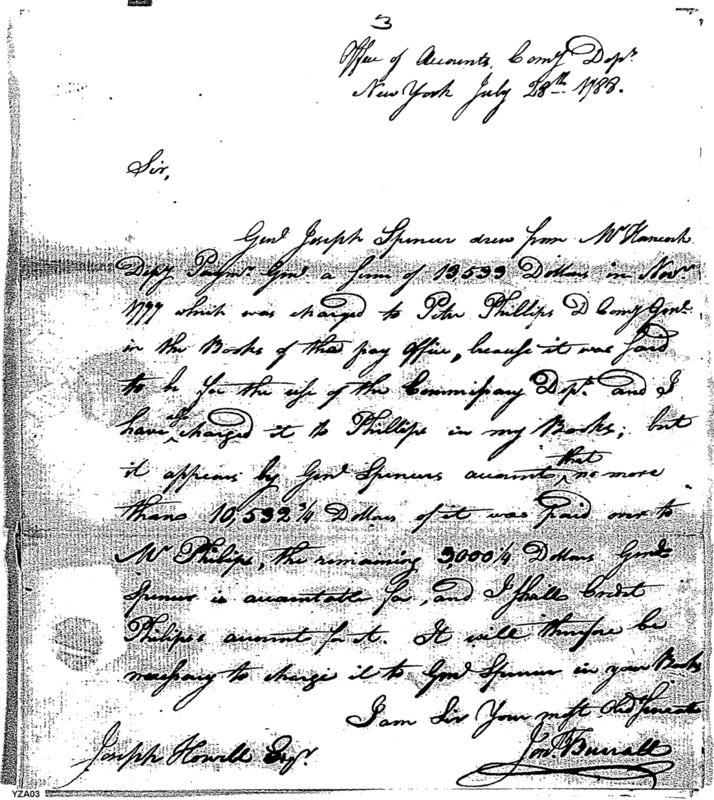 3
Office of Accounts, Comy Depr.
New York July 28th 1788.
Sir,
Genl Joseph Spencer drew from Mr Hancock
Depy Paymr Genl a sum of 13,533 Dollars in Novr
1777 which was charged to Peter Phillips D Comy Genl
in the Books of the pay Office, because it was said
to be for the use of the Commissary Dept. and I
have also charged it to Phillips in my Books; but
it appears by Genl Spencers account that no more
than 10,532 3/4 Dollars of it was paid over to
Mr Philips, the remaining 3000 1/4 Dollars Genl
Spencer is accountable for, and I shall Credit
Philips's account for it. It will therefore be
necessary to charge it to Genl Spencer in your Books
I am Sir Your most Obd Servant
Jon Burrall
Joseph Howell Esqr.
YZA03